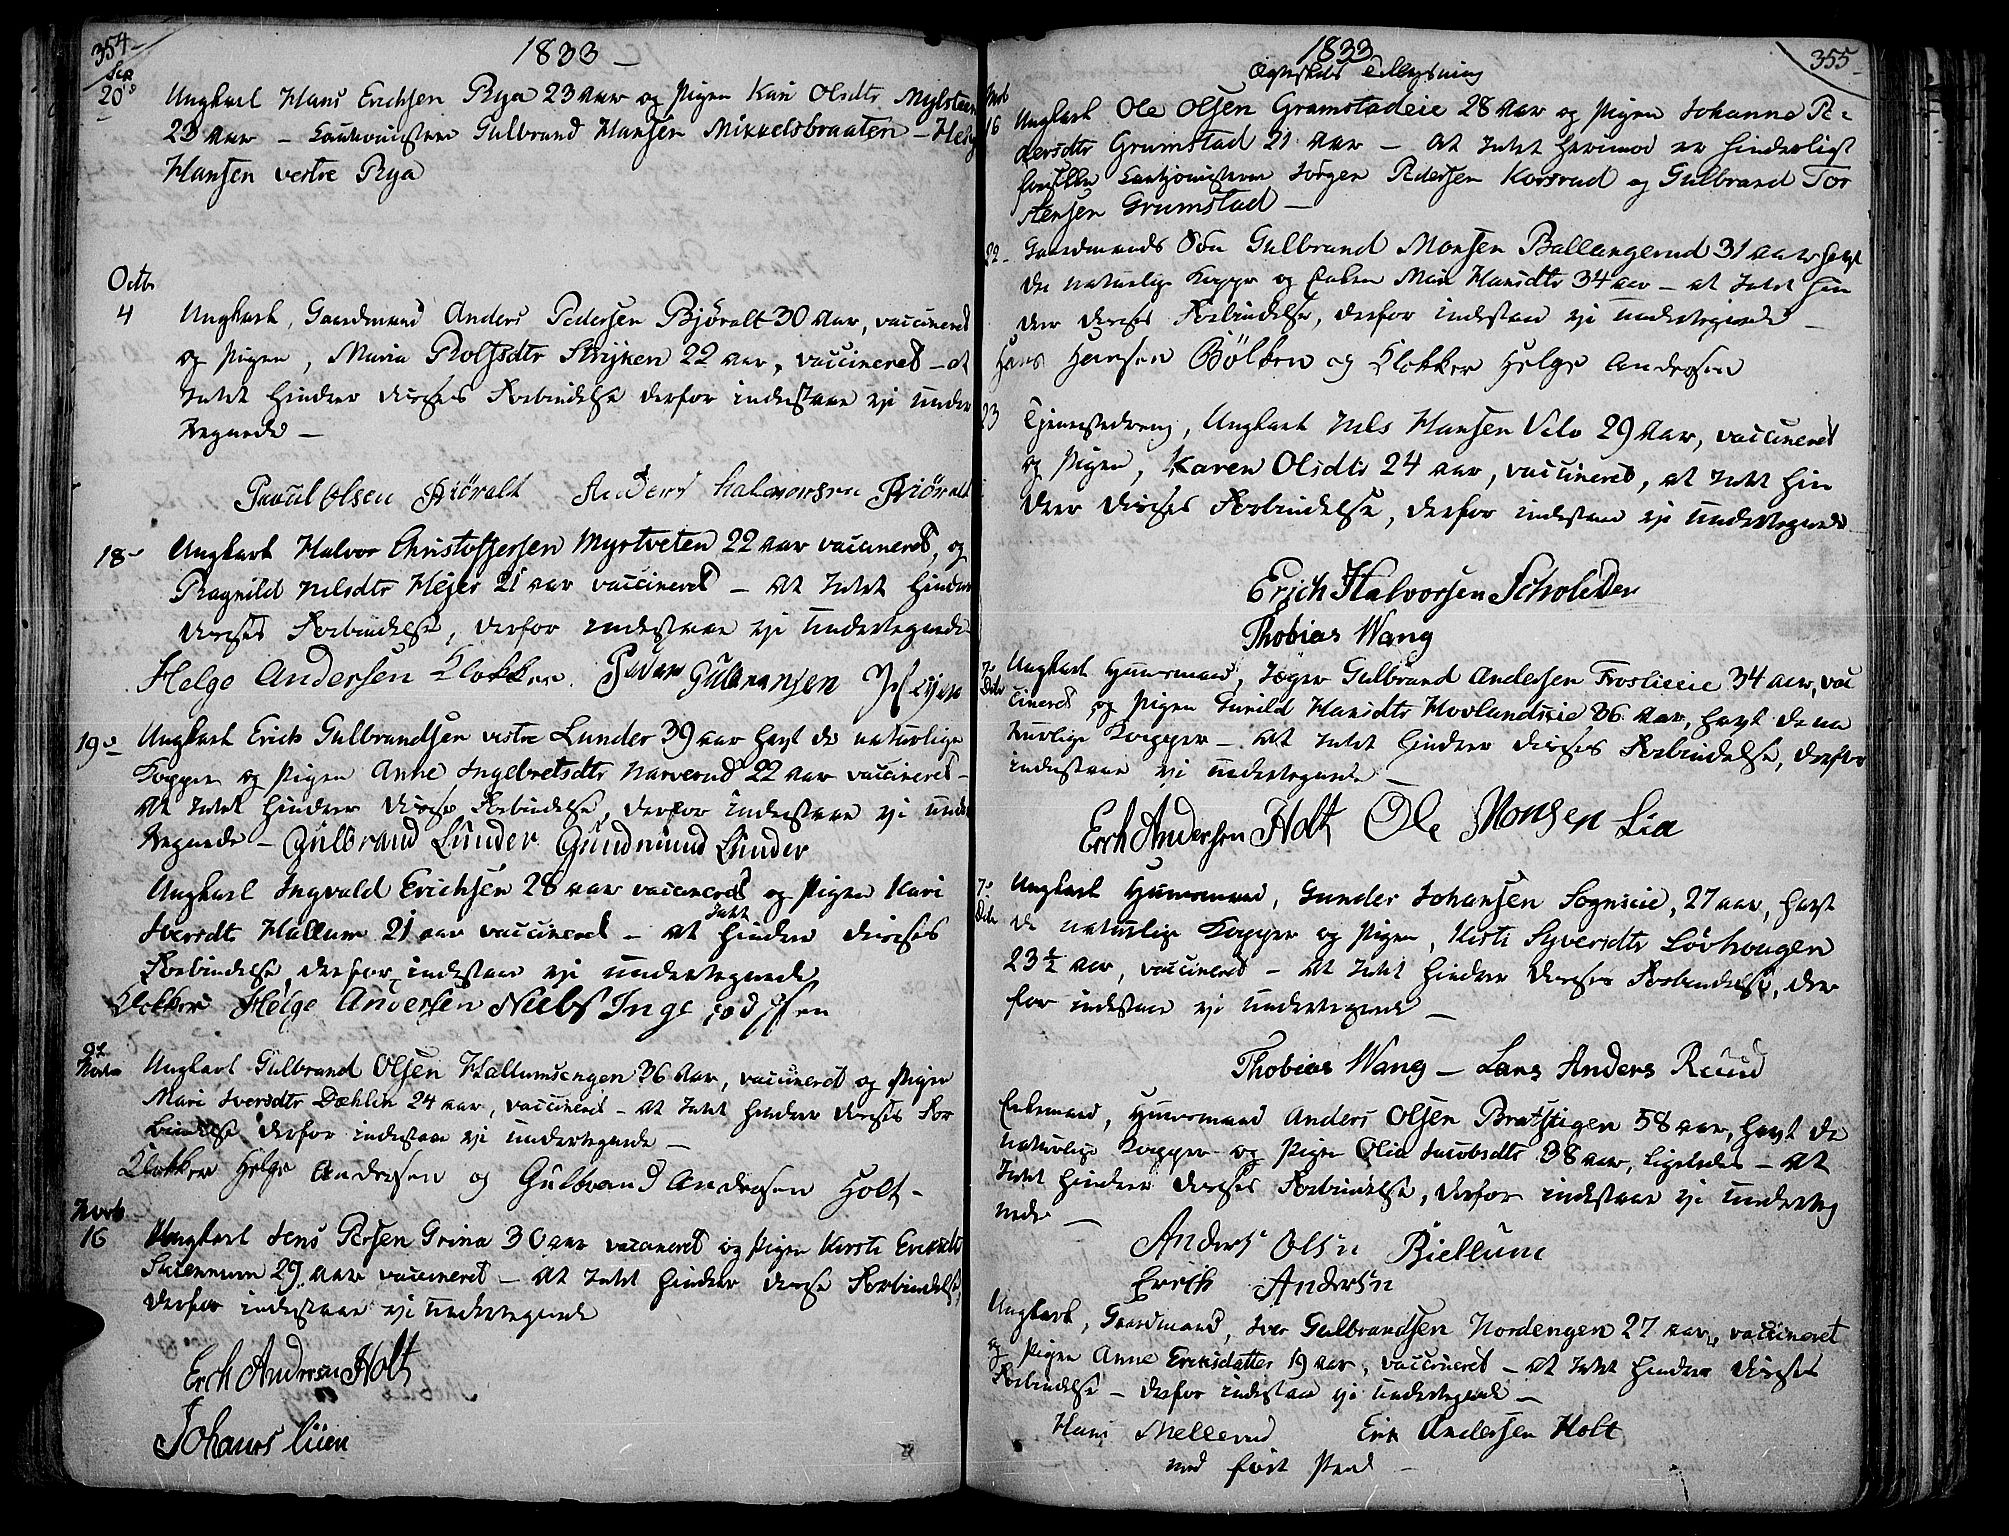 354
1833 –
Sep
20de
Ungkarl Hans Erichsen Rya 23 Aar og Pigen Kari Olsdtr Mylsteen
23 Aar – Cautionisterne Gulbrand Hansen Mikkelsbraaten – Helge
Hansen vestre Rya
Octbr
4
Ungkarl, Gaardmand Anders Pedersen Björalt 30 Aar, vaccineret
og Pigen, Maria Rolfsdtr Stryken 22 aar, vaccineret – at
Intet hindrer deres Forbindelse derfor indestaae vi under
tegnede –
Poul Olsen Biöralt Anders Halvorsen Biöralt
18 –
Ungkarl Halvor Christoffersen Myrtveten 22 Aar vaccineret, og
Ragnild Nilsdtr Hejer 21 aar vaccineret – at Intet hindrer
deres Forbindelse, derfor indestaae vi undertegnede
Helge Andersen Klokker. Peder Gulbransen
19de
Ungkarl Erich Gulbrandsen vestre Lunder 39 aar havt de naturlige
Kopper og Pigen Anne Ingebretsdtr Narverud 22 aar vaccineret –
at Intet hindrer deres Forbindelse, derfor indestaae vi under
tegnede – Gulbrand Lunder Gundmund Lunder
Ungkarl Ingvald Erichsen 28 aar vaccineret og Pigen Kari
Iversdtr Hallum 21 aar vaccineret – at Intet hindrer deres
Forbindelse derfor indestaae vi undertegnede
Klokker Helge Andersen Niels Inge
Ungkarl Gulbrand Olsen Hallumsengen 36 Aar, vaccineret og Pigen
Mari Iversdtr Dæhlin 24 aar, vaccineret – at Intet hindrer deres For
bindelse derfor indestaae vi undertegnede –
Klokker Helge Andersen og Gulbrand Andersen Holt –
Novb
16
Ungkarl Jens Persen Grina 30 aar vaccineret og Pigen Kersti Eriksdtr
29 Aar vaccineret – at Intet hindrer deres Forbindelse,
derfor indestaae vi undertegnede
Erch Andersen Holt
Johanes Lien
1833
355
Ægteskabs Tillysning
Novb
16
Ungkarl Ole Olsen Gramstadeie 28 Aar og Pigen Johanne Pe-
dersdtr Gramstad 21 Aar – at Intet herimod er hinderligt
Cautionisterne Jörgen Pedersen Korsrud og Gulbrand Tor
stensen Gramstad –
22 –
Gaardmands Sön Gulbrand Monsen Ballangerud 31 aar havt
de naturlige Kopper og Enken Mari Hansdtr 34 aar – at Intet hin
drer deres Forbindelse, derfor indestaae vi undertegnede –
Hans Hansen Bölken og Klokker Helge Andersen
23
Tjenestedreng, Ungkarl Nels Hansen Velo 29 Aar, vaccineret
og Pigen, Karen Olsdtr 24 aar, vaccineret, at Intet hin
drer deres Forbindelse, derfor indestaae vi undertegnede
Erich Halvorsen
Thobias Wang
7de
Dcbr
Ungkarl Huusmand, Jæger Gulbrand Andersen Froslieeie 34 aar, vac
cineret og Pigen Gunild Hansdtr Hovlandseie 36 Aar, havt de na
turlige Kopper – at Intet hindrer deres Forbindelse, derfor
indestaae vi undertegnede –
Erch Andersen Holt Ole Monsen Lia
7de
Dcbr
Ungkarl Huusmand, Gunder Johansen Sognseie, 27 aar, havt
de naturlige Kopper og Pigen, Kersti Syversdtr Lövhougen
23 ½ Aar, vaccineret – at Intet hindrer deres Forbindelse, der
for indestaae vi undertegnede –
Thobias Wang – Lars Anders Ruud
Enkemand, Huusmand Anders Olsen Bratstigen 58 aar, havt de
naturlige Kopper og Pigen Olia Jacobsdtr 38 aar, ligeledes – at
Intet hindrer deres Forbindelse, derfor indestaae vi underteg
nede –
Anders Olsn Biellum
Errich Andersn
Ungkarl, Gaardmand, Iver Gulbrandsen Nordengen 27 aar, vaccineret
og Pigen Anne Eriksdatter 19 aar, vaccineret – at Intet hindrer deres
Forbindelse – derfor indestaae vi undertegnede –
Hans Mellerud Erik Andersen Holt
med fört Pend –